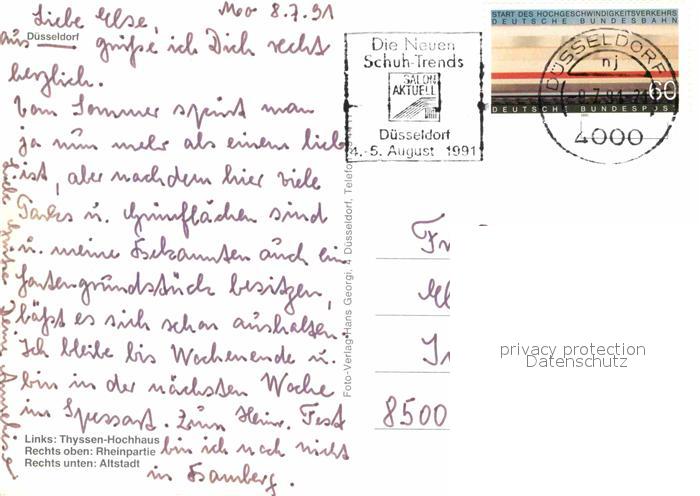 Mo 8.7.91
Liebe Else,
aus Düsseldorf grüße ich Dich recht
herzlich.
Vom Sommer spürt man
ja nun mehr als einem lieb
ist, aber nachdem hier viele
Parks u. Grünflächen sind
u. meine Bekannten auch ein
Gartengrundstück besitzen,
läßt es sich schon aushalten.
Ich bleibe bis Wochenende u.
bin in der nächsten Woche
im Spessart. Zum Heinr. Fest
bin ich noch nicht
in Bamberg.
Liebe Grüße Deine Anneliese
Links: Thyssen-Hochhaus
Rechts oben: Rheinpartie
Rechts unten: Altstadt
Foto-Verlag Hans Georgi, 4 Düsseldorf, Telefon
Die Neuen
Schuh-Trends
SALON
AKTUELL
Düsseldorf
4.-5. August 1991
START DES HOCHGESCHWINDIGKEITSVERKEHRS
DEUTSCHE BUNDESBAHN
60
DEUTSCHE BUNDESPOST
DÜSSELDORF
nj
8.7.91-21
4000
Fr
El
In
8500
privacy protection
Datenschutz